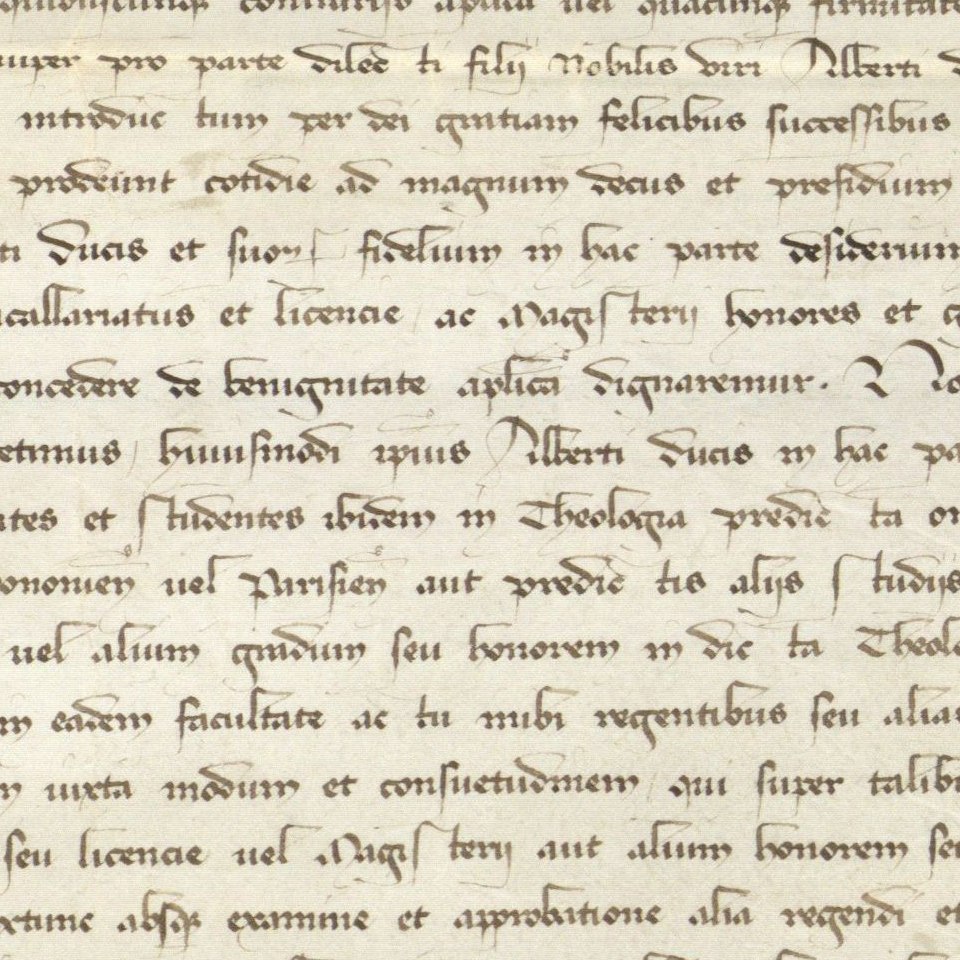 contrarijs aplica uel quacunq firmitate
super pro parte dilecti filij Nobilis viri Alberti
introductum per dei gratiam felicibus successibus
prodeunt cotidie ad magnum decus et presidium
ti Ducis et suor fidelium in hac parte desiderium
acallariatus et licencie ac Magisterij honores et
concedere de benignitate aplica dignaremur. No
etimus, huiusmodi ipius Alberti Ducis in hac pa
ntes et studentes ibidem in Theologia predicta or
ononien uel Parisien aut predictis alijs studijs
uel alium gradum seu honorem in dicta Theolo
m eadem facultate actu inibi regentibus seu alias
n iuxta modum et consuetudinem, qui super talib
seu licencie uel Magisterij aut alium honorem se
xtunc absq examine et approbatione alia regendi et